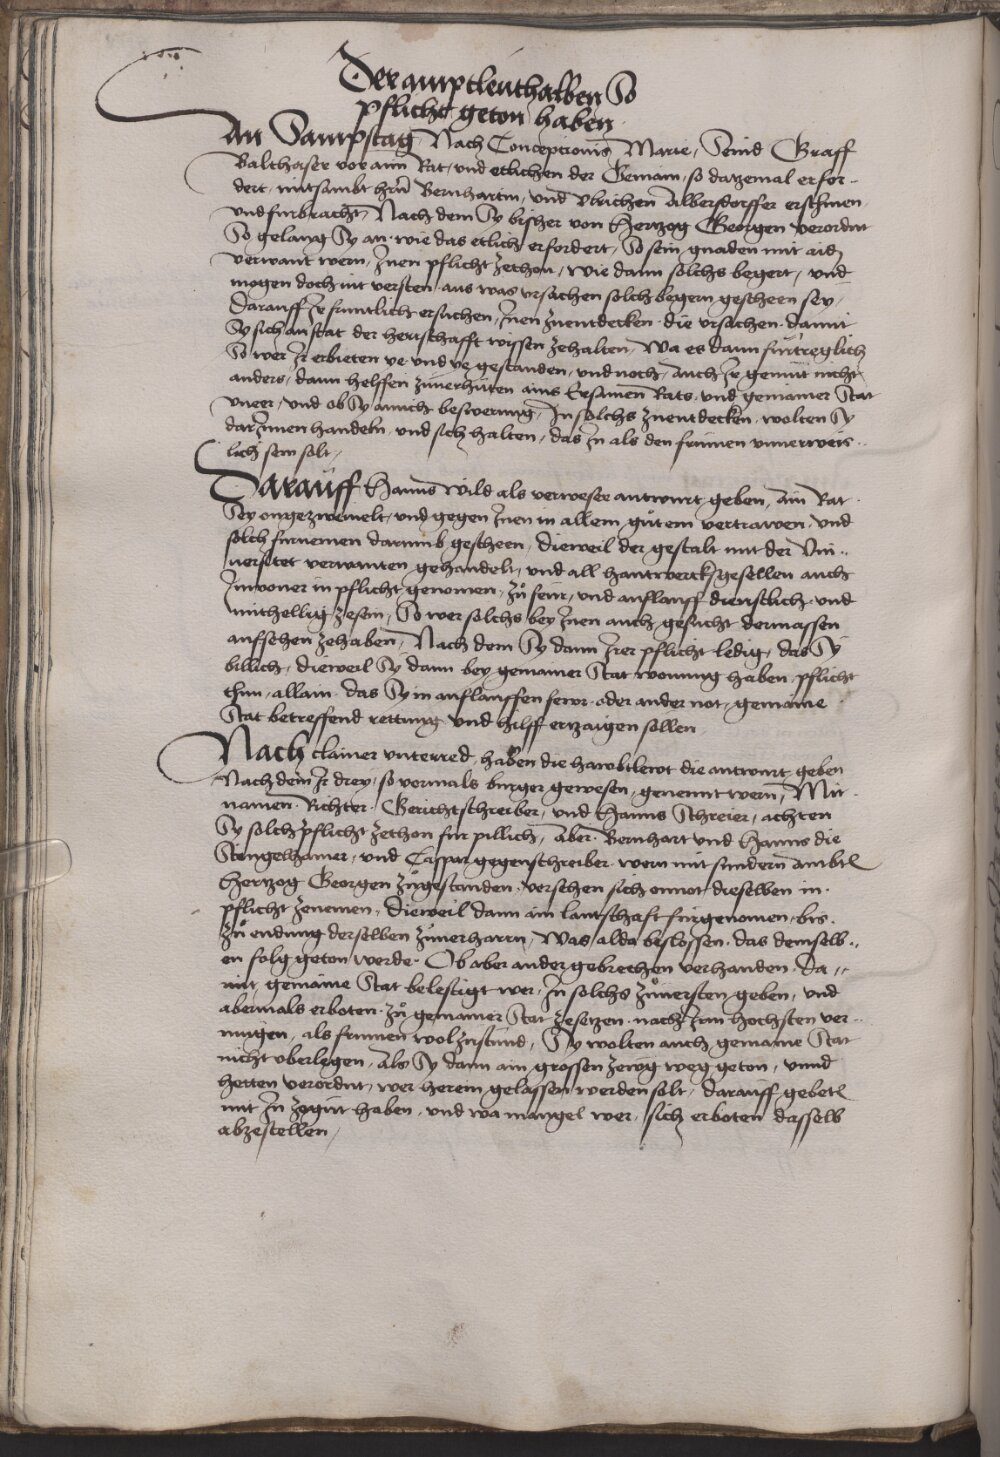 Der amptleut halben So
pflicht geton haben
An Sampstag Nach Conceptionis Marie, Seind Graff
Balthaser vor aim Rat, vnd etlichen der Gemain, so datzemal erfor-
dert, mitsambt hern Bernhartin, vnd Vlrichen Albersdorffer erschinen,
vnd furbracht, Nach dem Sy bisher von Hertzog Georgen verordnt
So gelang Sy an, wie das etlich erfordert, So sein gnaden mit aid
verwant wern, Jnen pflicht zethon, wie dann solchs begert, vnd
mogen doch nit versten, aus was vrsachen solch begern gescheen sey,
Darauff Jr fruntlich ersuchen, Jnen zuentdecken die vrsachen, damit
Sy sich an stat der herrschafft wissen zehalten, Wa es dann furtreglich
So wer Jr erbieten ye vnd ye gestanden, vnd noch, Auch Jr gemüt nicht
anders, dann helffen zuuerhüten ains Ersamen Rats, vnd gemainer Stat
vneer, vnd ob Sy ainich beswerung, Jn solchs zuentdecken, wolten Sy
dar Jnnen handeln, vnd sich halten, das Jn als den frumen vnuerweis-
lich sein solt,
Darauff Hanns Wild als verweser antwurt geben, Ain Rat
Sey ongezweiuelt, vnd gegen Jnen in allem gutem vertrawen, vnd
solch furnemen darumb gescheen, dieweil der gestalt mit der Vni-
uersitet verwanten gehandelt, vnd all hantwercksgesellen auch
Jnwoner in pflicht genomen, Zu feur, vnd auflauff dienstlich vnd
mithellig zesein, So wer solchs bey Jnen auch gesucht dermassen
aufsehen zehaben, Nach dem Sy dann Jrer pflicht ledig, das Sy
billich, dieweil Sy dann bey gemainer Stat wonung haben, pflicht
thun, allain das Sy in auflauffen fewr, oder ander not, gemaine
Stat betreffend rettung vnd hilff ertzaigen sollen
Nach clainer vnterred, haben die hawbtlewt die antwurt geben
Nach dem Jr drey, so vormals burger gewesen, genennt wern, Mit
namen Richter, Gerichtschreiber, vnd Hanns Schreier, achten
Sy solch pflicht zethon fur pillich, Aber Bernhart vnd Hanns die
Stingelhamer, vnd Caspar gegenschreiber wern mit sundern ambtl
Hertzog Georgen zugestanden, versehen sich onnot dieselben in
pflicht zenemen, Dieweil dann ain lantschaft furgenomen, bis
zu endung derselben zuuerharrn, Was alda beslossen, das demselb-
en folg geton werde. Ob aber ander gebrechen verhanden, Da-
mit gemaine Stat belestigt wer, Jn solchs zuuersten geben, vnd
abermals erboten, zu gemainer Stat zesetzen, nach Jrm hochsten ver-
mugen, als frumen wol zustund, Sy wolten auch gemaine Stat
nicht vberlegen, Als Sy dann ain grossen zewg weg geton, vnnd
hetten verordnt, wer herein gelassen werden solt, darauff gebetl
mit Jn zegut haben, vnd wa mangel wer, sich erboten dasselb
abzestellen,